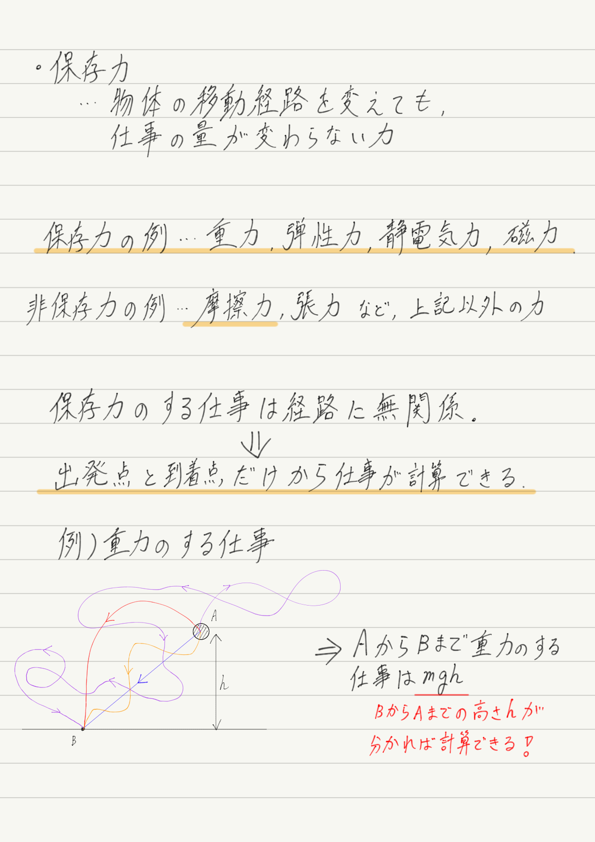 ・保存力
… 物体の移動経路を変えても,
仕事の量が変わらない力
保存力の例 … 重力, 弾性力, 静電気力, 磁力.
非保存力の例 … 摩擦力, 張力 など, 上記以外の力
保存力のする仕事は経路に無関係.
⇓
出発点と到着点だけから仕事が計算できる.
例)重力のする仕事
A
h
B
⇒ AからBまで重力のする
仕事はmgh
BからAまでの高さhが
分かれば計算できる!